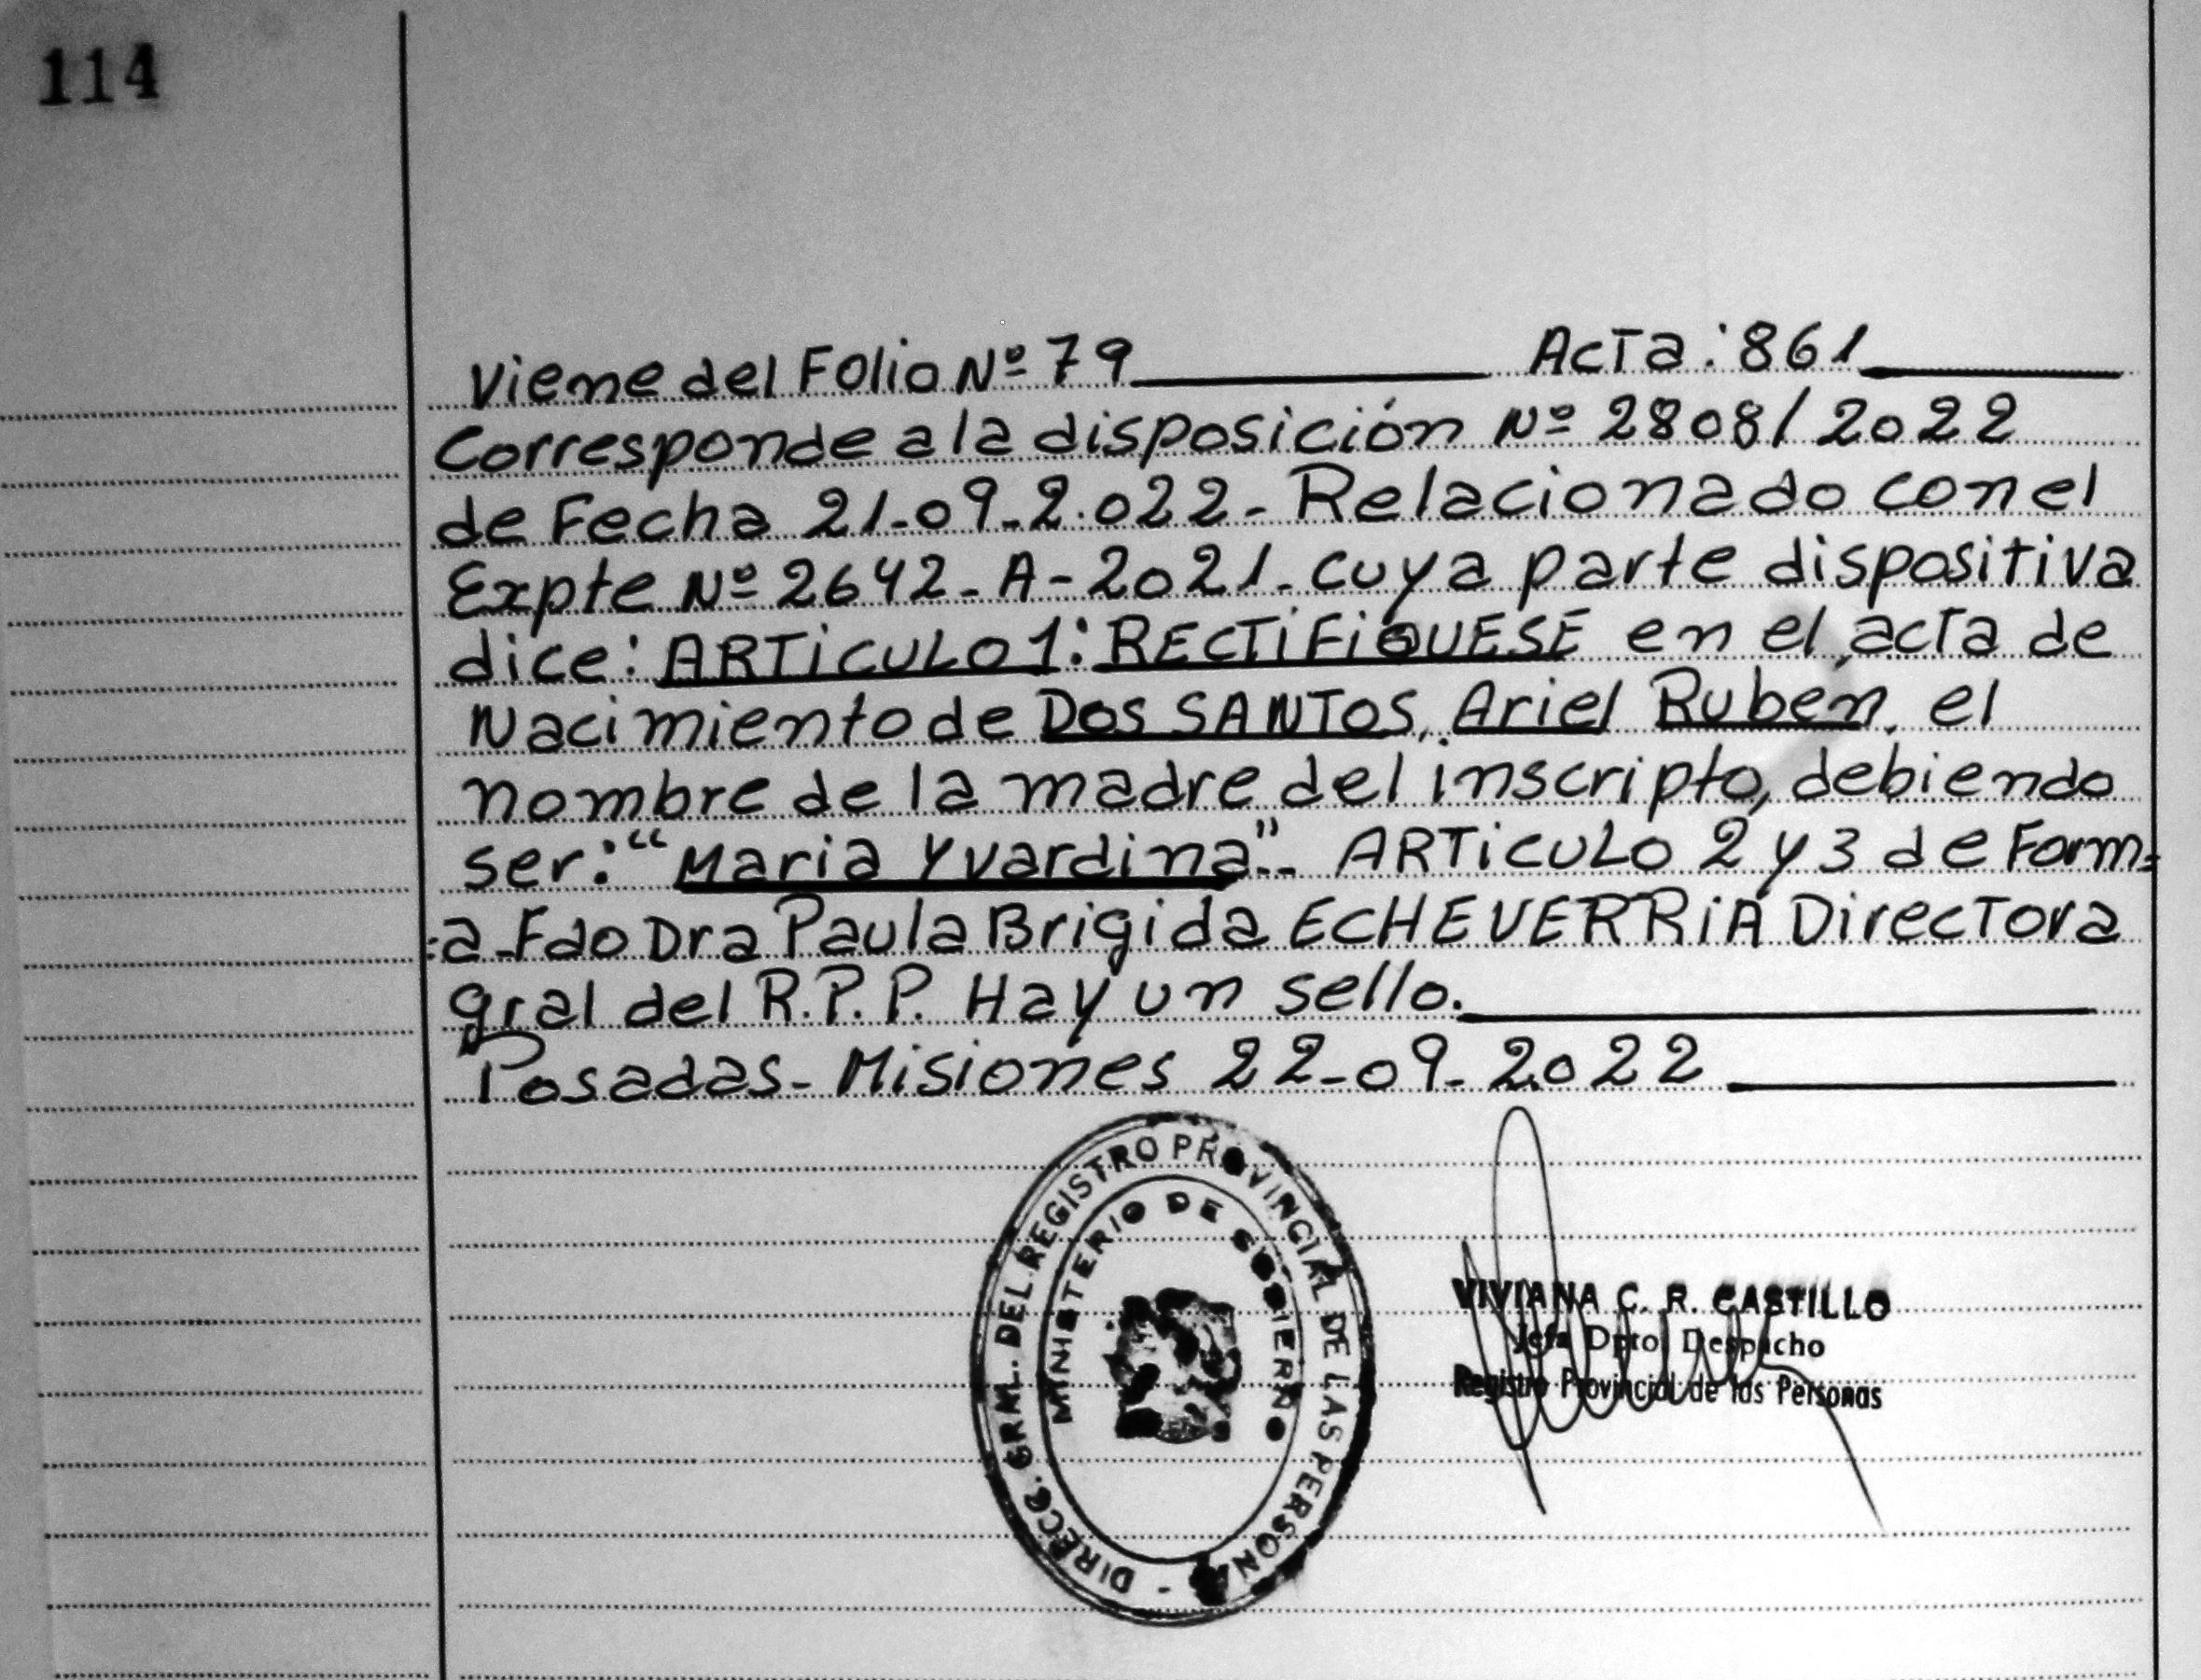 114
Viene del Folio Nº 79 Acta: 861
Corresponde a la disposición Nº 2808/2022
de Fecha 21-09-2.022- Relacionado con el
Expte Nº 2642-A-2021- cuya parte dispositiva
dice: ARTICULO 1: RECTIFIQUESE en el acta de
Nacimiento de DOS SANTOS, Ariel Ruben, el
nombre de la madre del inscripto, debiendo
ser: "Maria Yvardina"- ARTICULO 2 y 3 de Form=
=a-Fdo Dra Paula Brigida ECHEVERRIA Directora
gral del R.P.P. Hay un sello.
Posadas- Misiones 22-09-2.022
DIRECC. GRAL. DEL REGISTRO PROVINCIAL DE LAS PERSONAS -
MINISTERIO DE GOBIERNO
VIVIANA C. R. CASTILLO
Jefa Dpto Despacho
Registro Provincial de las Personas